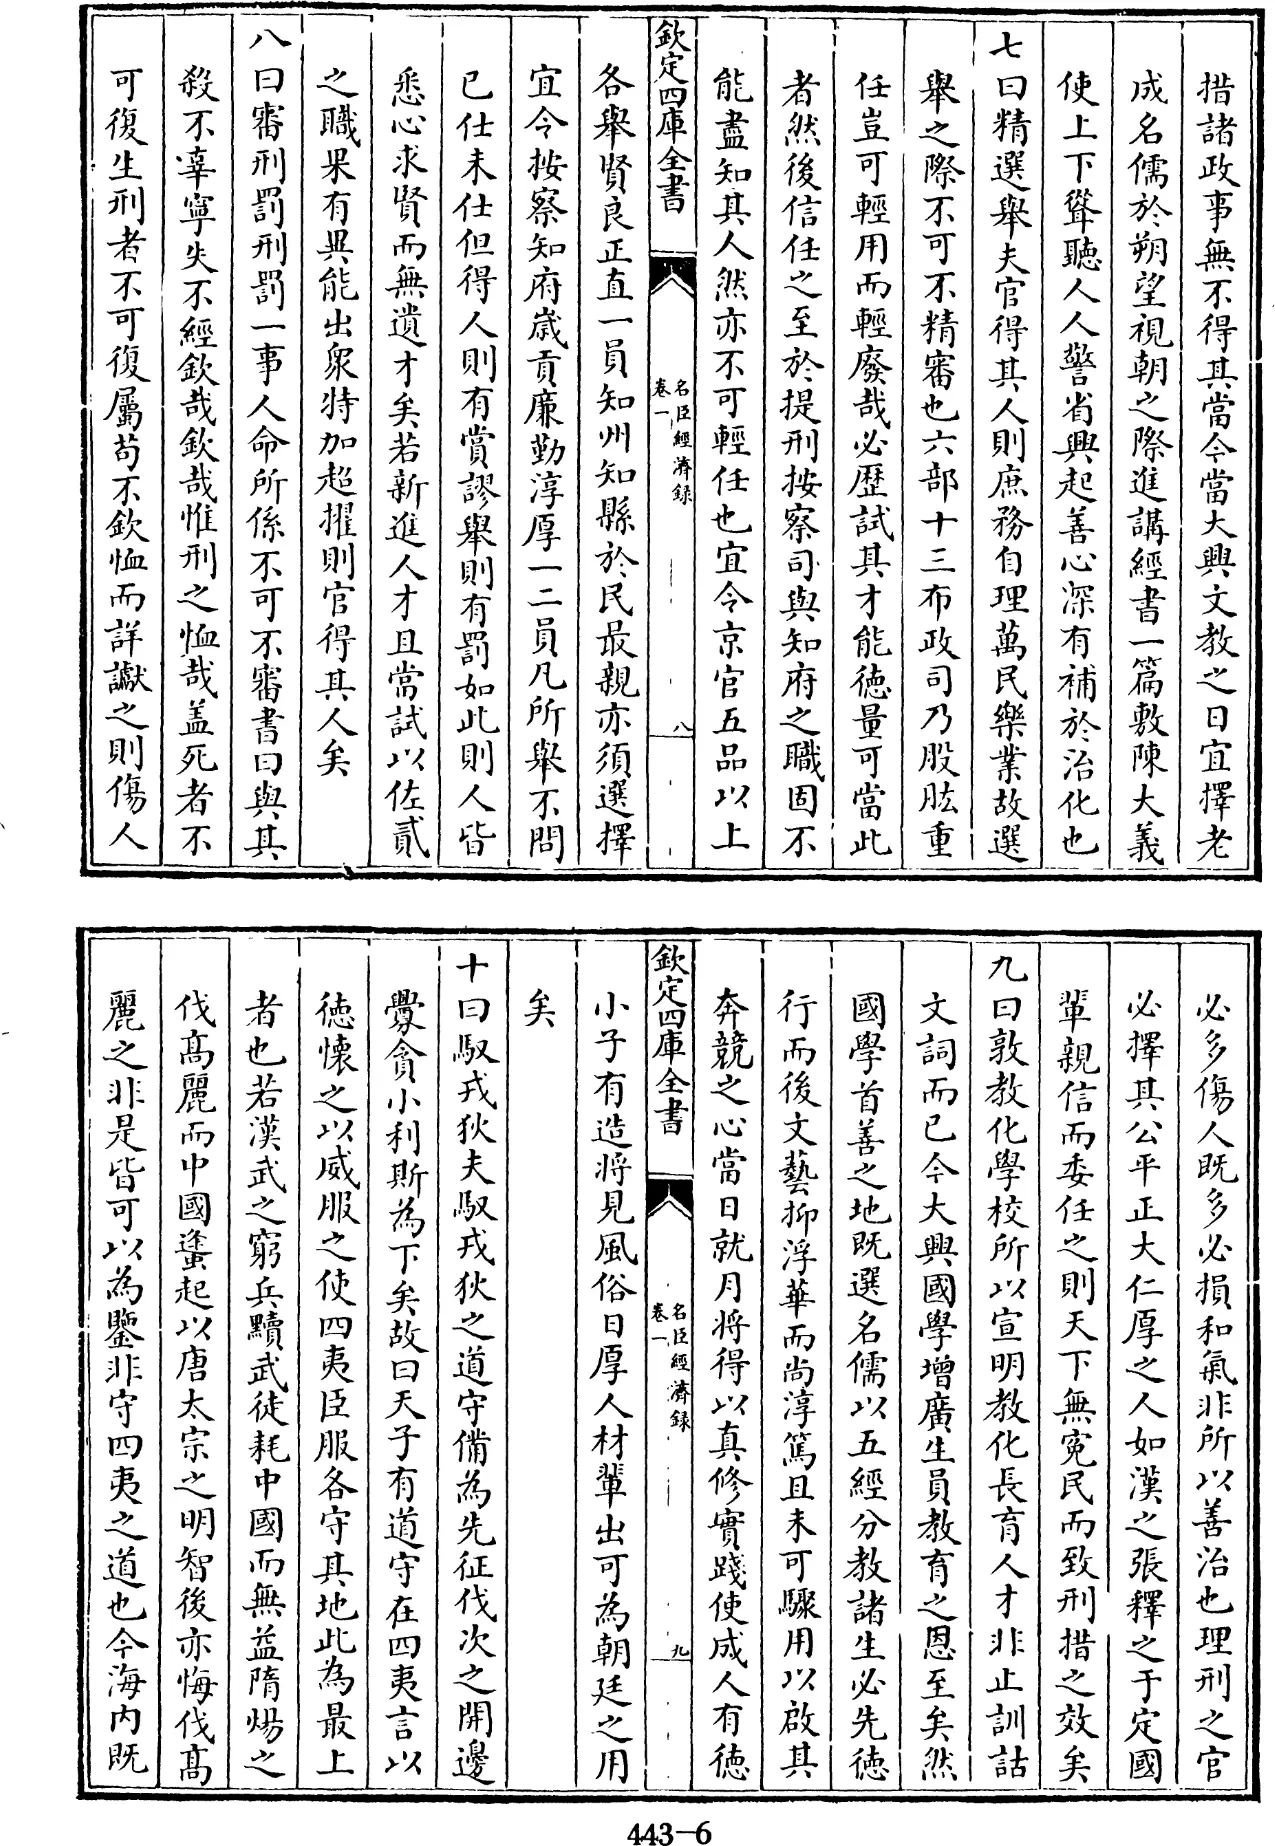 措諸政事無不得其當今當大興文教之日宜擇老
成名儒於朔望視朝之際進講經書一篇敷陳大義
使上下聳聽人人警省興起善心深有補於治化也
七曰精選舉夫官得其人則庶務自理萬民樂業故選
舉之際不可不精審也六部十三布政司乃股肱重
任豈可輕用而輕廢哉必歷試其才能徳量可當此
者然後信任之至於提刑按察司與知府之職固不
能盡知其人然亦不可輕任也宜令京官五品以上
欽定四庫全書
名臣經濟録
卷一
八
各舉賢良正直一員知州知縣於民最親亦須選擇
宜令按察知府嵗貢廉勤淳厚一二員凡所舉不問
已仕未仕但得人則有賞謬舉則有罰如此則人皆
悉心求賢而無遺才矣若新進人才且當試以佐貳
之職果有異能出衆特加超擢則官得其人矣
八曰審刑罰刑罰一事人命所係不可不審書曰與其
殺不辜寧失不經欽哉欽哉惟刑之恤哉盖死者不
可復生刑者不可復屬苟不欽恤而詳讞之則傷人
必多傷人既多必損和氣非所以善治也理刑之官
必擇其公平正大仁厚之人如漢之張釋之于定國
輩親信而委任之則天下無寃民而致刑措之效矣
九曰敦教化學校所以宣明教化長育人才非止訓詁
文詞而已今大興國學增廣生員教育之恩至矣然
國學首善之地既選名儒以五經分教諸生必先徳
行而後文藝抑浮華而尚淳篤且未可驟用以啟其
奔競之心當日就月將得以真修實踐使成人有徳
欽定四庫全書
名臣經濟録
卷一
九
小子有造將見風俗日厚人材輩出可為朝廷之用
矣
十曰馭戎狄夫馭戎狄之道守備為先征伐次之開邊
釁貪小利斯為下矣故曰天子有道守在四夷言以
徳懷之以威服之使四夷臣服各守其地此為最上
者也若漢武之窮兵黷武徒耗中國而無益隋煬之
伐髙麗而中國蜂起以唐太宗之明智後亦悔伐髙
麗之非是皆可以為鑒非守四夷之道也今海内既
443-6